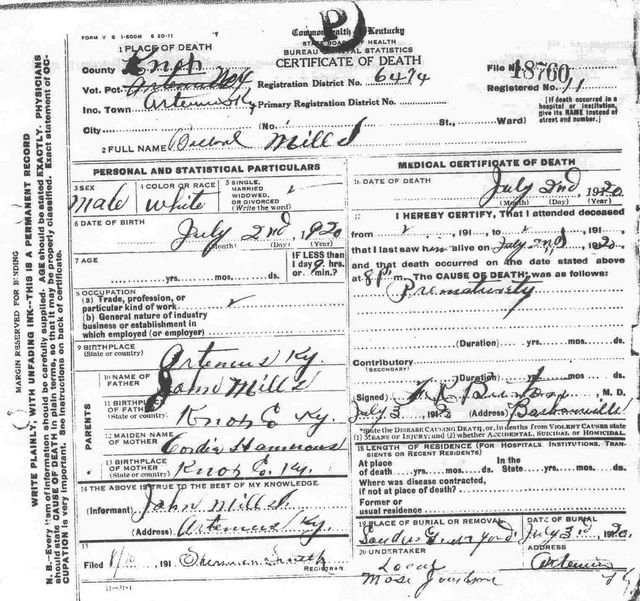 FORM V S 1-500M 5 20-11
P
Commonwealth of Kentucky
STATE BOARD OF HEALTH
BUREAU OF VITAL STATISTICS
CERTIFICATE OF DEATH
1 PLACE OF DEATH
County Knox
Vot. Pct. Artemus Ky
Inc. Town Artemus Ky
City (No. St., Ward)
Registration District No. 6474
Primary Registration District No.
File No. 18760
Registered No. 11
(If death occurred in a hospital or institution, give its NAME instead of street and number.)
2 FULL NAME Mills
PERSONAL AND STATISTICAL PARTICULARS
3 SEX Male
4 COLOR OR RACE White
5 SINGLE, MARRIED WIDOWED, OR DIVORCED (Write the word)
6 DATE OF BIRTH July 2nd, 1920
(Month) (Day) (Year)
7 AGE yrs. mos. ds.
IF LESS than 1 day hrs. or min.?
8 OCCUPATION
(a) Trade, profession, or particular kind of work
(b) General nature of industry business or establishment in which employed (or employer)
9 BIRTHPLACE (State or country) Artemus Ky.
PARENTS
10 NAME OF FATHER John Mills
11 BIRTHPLACE OF FATHER (State or country) Knox Co Ky.
12 MAIDEN NAME OF MOTHER Cordia Hammons
13 BIRTHPLACE OF MOTHER (State or country) Knox Co. Ky.
14 THE ABOVE IS TRUE TO THE BEST OF MY KNOWLEDGE
(Informant) John Mills
(Address) Artemus Ky.
15
Filed 191 REGISTRAR
11-3184
MEDICAL CERTIFICATE OF DEATH
16 DATE OF DEATH July 2nd, 1920
(Month) (Day) (Year)
17 I HEREBY CERTIFY, That I attended deceased
from 191 , to 191 ,
that I last saw him alive on July 2nd, 1920
and that death occurred on the date stated above
at 8 P m. The CAUSE OF DEATH was as follows:
Prematurety
(Duration) yrs. mos. ds.
Contributory (SECONDARY)
(Duration) yrs. mos. ds.
Signed M. D.
July 3 191 (Address) Barbourville
*State the DISEASE CAUSING DEATH, or, in deaths from VIOLENT CAUSES state (1) MEANS OF INJURY; and (2) whether ACCIDENTAL, SUICIDAL or HOMICIDAL.
18 LENGTH OF RESIDENCE (FOR HOSPITALS, INSTITUTIONS, TRANSIENTS OR RECENT RESIDENTS)
At place of death yrs. mos. ds. State yrs. mos. ds.
Where was disease contracted, if not at place of death?
Former or usual residence
19 PLACE OF BURIAL OR REMOVAL Yard
DATE OF BURIAL July 3rd 1920
20 UNDERTAKER Local
Mose Jackson
ADDRESS Artemus Ky
MARGIN RESERVED FOR BINDING
WRITE PLAINLY, WITH UNFADING INK—THIS IS A PERMANENT RECORD
N. B.—Every item of information should be carefully supplied. AGE should be stated EXACTLY. PHYSICIANS should state CAUSE OF DEATH in plain terms, so that it may be properly classified. Exact statement of OCCUPATION is very important. See instructions on back of certificate.